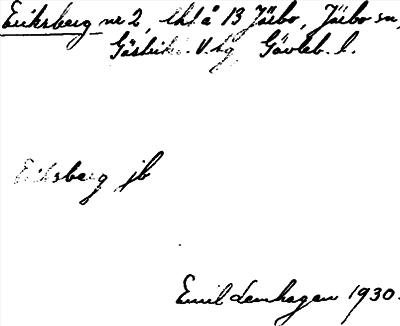 Eriksberg nr 2, lht å 13 Järbo, Järbo sn,
Gästrikl. V. tg, Gävleb. l.
Eriksberg jb
Emil Lenhagen 1930.